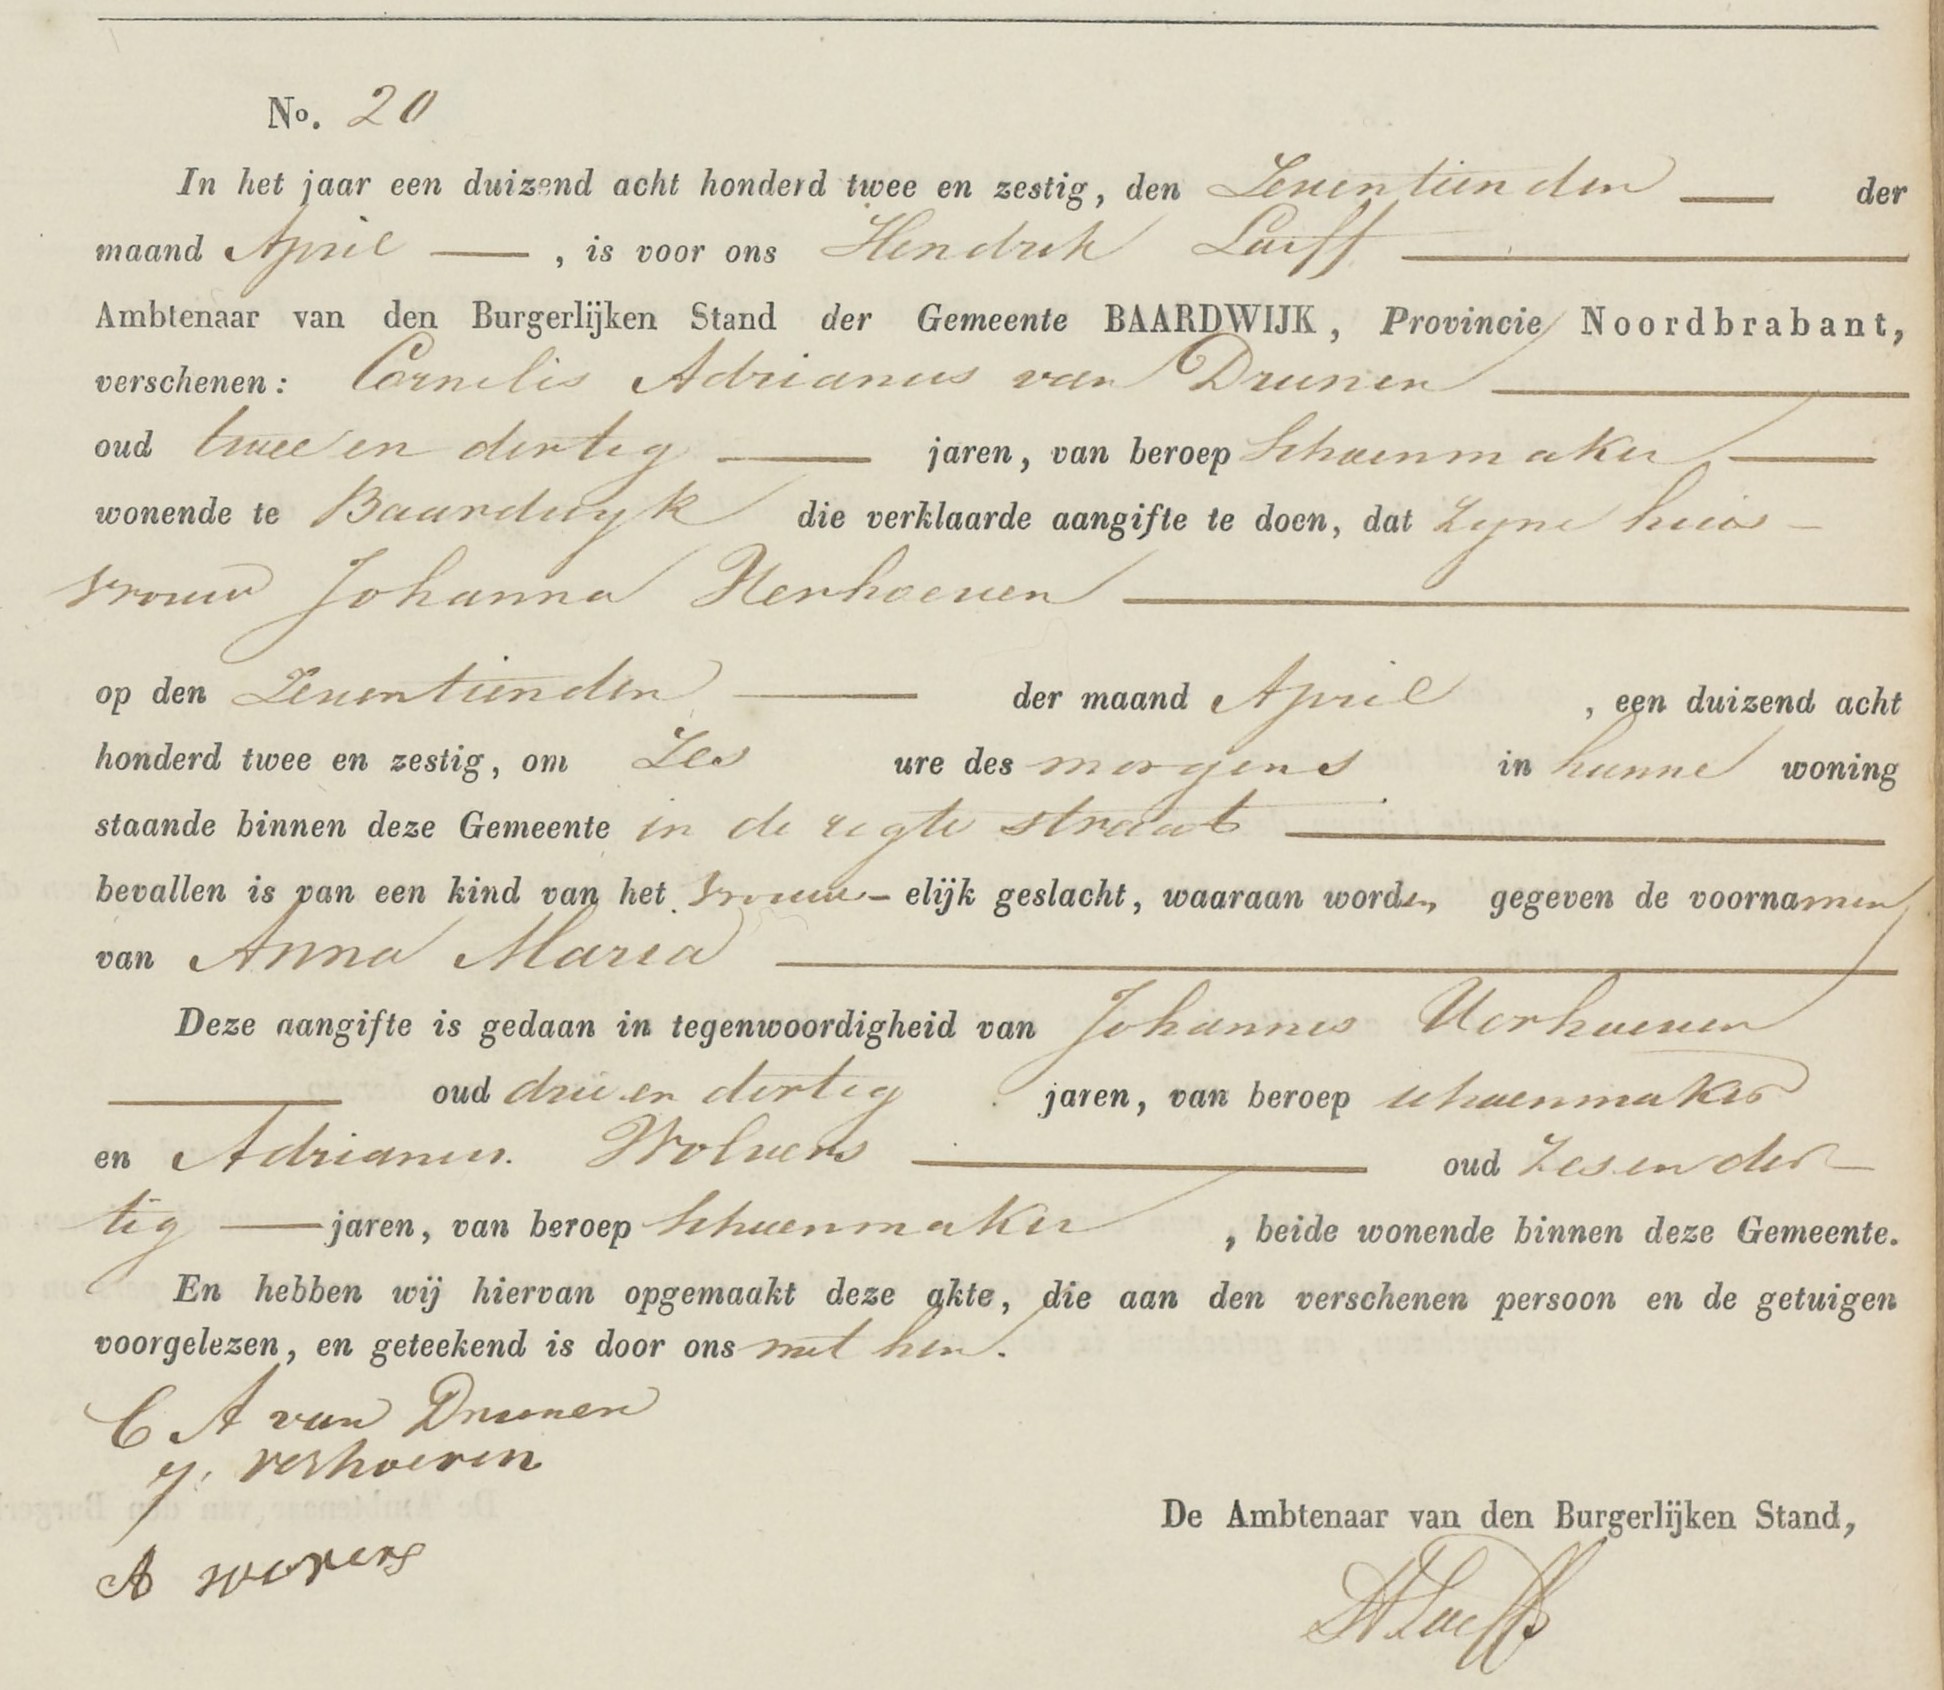 No. 20
In het jaar een duizend acht honderd twee en zestig, den Zeventienden der
maand April, is voor ons Hendrik Loeff
Ambtenaar van den Burgerlijken Stand der Gemeente BAARDWIJK, Provincie Noordbrabant,
verschenen: Cornelis Adrianus van Drunen
oud twee en dertig jaren, van beroep Schoenmaker
wonende te Baardwyk die verklaarde aangifte te doen, dat zyne huis-
vrouw Johanna Verhoeven
op den Zeventienden der maand April, een duizend acht
honderd twee en zestig, om Zes ure des morgens in hunne woning
staande binnen deze Gemeente in de regte straat
bevallen is van een kind van het vrouw- elijk geslacht, waaraan worden gegeven de voornamen
van Anna Maria
Deze aangifte is gedaan in tegenwoordigheid van Johannes Verhoeven
oud drie en dertig jaren, van beroep schoenmaker
en Adrianus Wolvers oud Zes en der-
tig jaren, van beroep Schoenmaker, beide wonende binnen deze Gemeente.
En hebben wij hiervan opgemaakt deze akte, die aan den verschenen persoon en de getuigen
voorgelezen, en geteekend is door ons met hen.
C A van Drunen
J. verhoeven
A
De Ambtenaar van den Burgerlijken Stand,
H Loeff